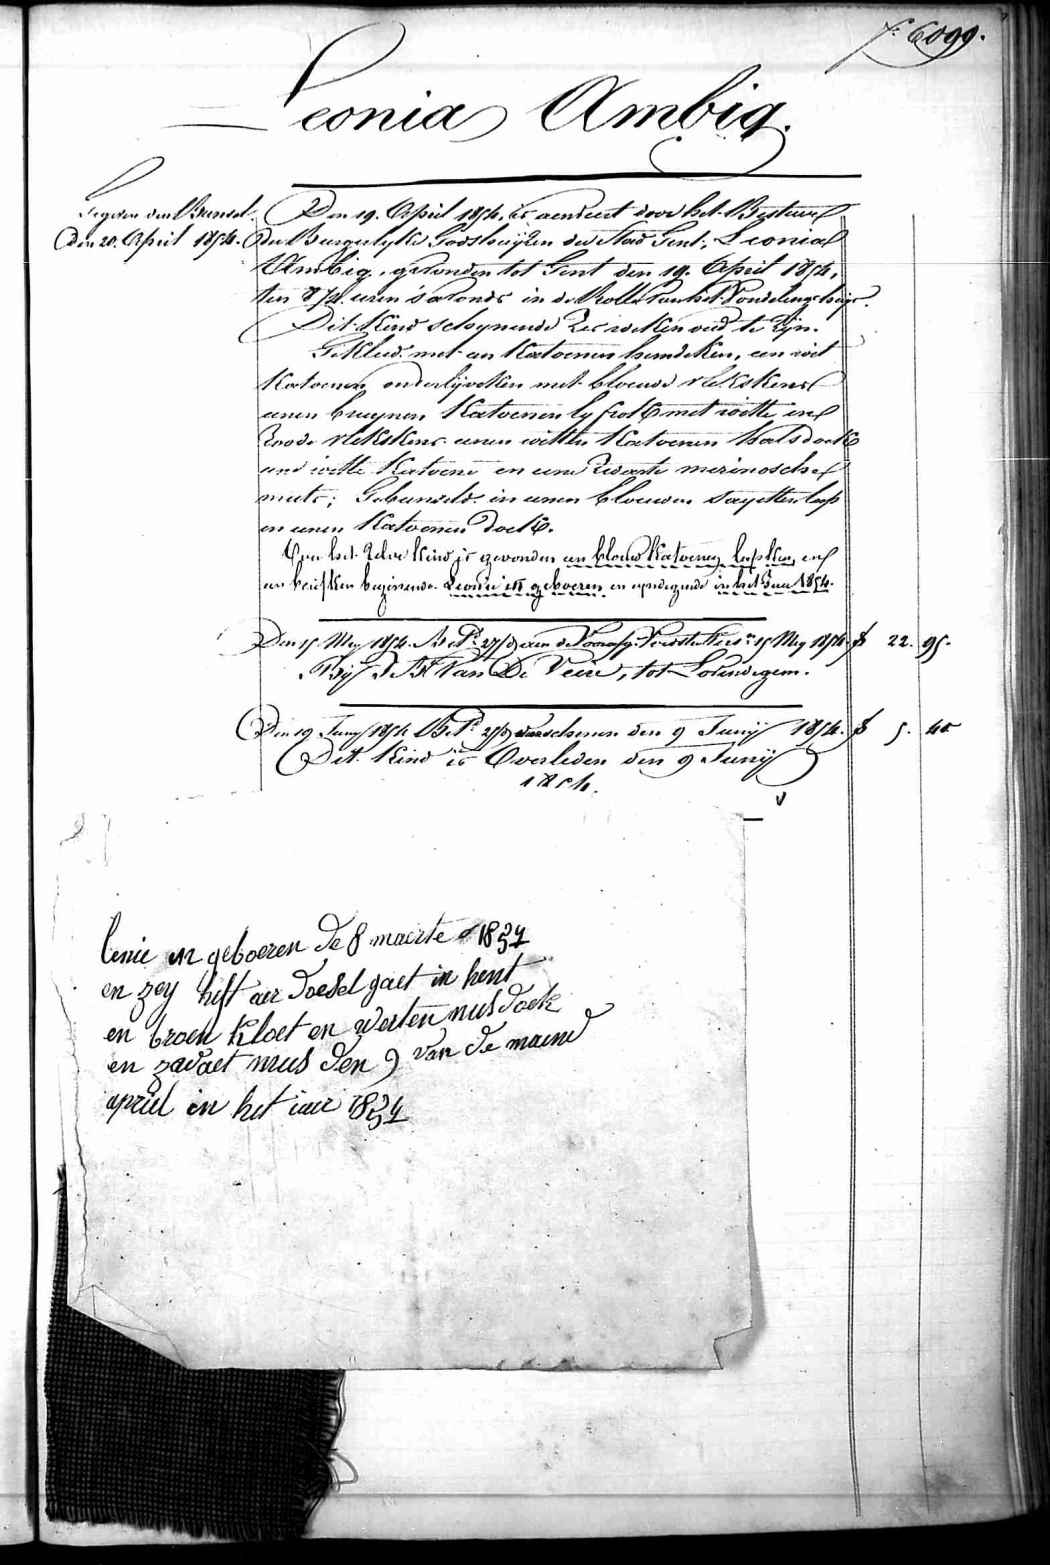 f. 6099.
Leonia Ambig.
Tegen den Bundel
den 20. April 1854.
Den 19. April 1854, is aenveert door het Bestuur
der Burgerlyke Godshuijzen der Stad Gent, Leonia
Ambig, gevonden tot Gent den 19. April 1854,
ten 8 1/2 uren 's avonds in de Rolle van het Vondelingshuijs.
Dit Kind schynende zes weken oud te zyn.
Gekleed met een Katoenen hemdeken, een wit
Katoenen onderlijveken met blauwe vlekskens
eenen bruynen Katoenen lyfrok met witte en
roode vlekskens eenen witten Katoenen halsdoek
eene witte Katoene en eene zwarte merinosche
muts; Gebunseld in eenen blauwen sayetten lap
en eenen Katoenen doek.
Op het zelve Kind is gevonden een blauw Katoenen lapken, en
een briefken beginnende Leonie is geboeren en eyndigende in het Jaer 1854.
Den 15 Mey 1854. Bet. 27/9 aen de Voorsz. Verstelkies. 15 Mey 1854. f 22. 95.
Bij J. F. Van De Veire, tot Lovendegem.
Den 19 Juny 1854 Bet. 27/9 verschenen den 9 Junij 1854. f 5. 40
Dit Kind is Overleden den 9 Junij
1854.
lenie en geboeren de 8 maerte 1854
en zey heft aer doesel gaet in hent
en broen kloet en werten nusdoek
en zavaet mus den 9 van de maend
april in het iaer 1854